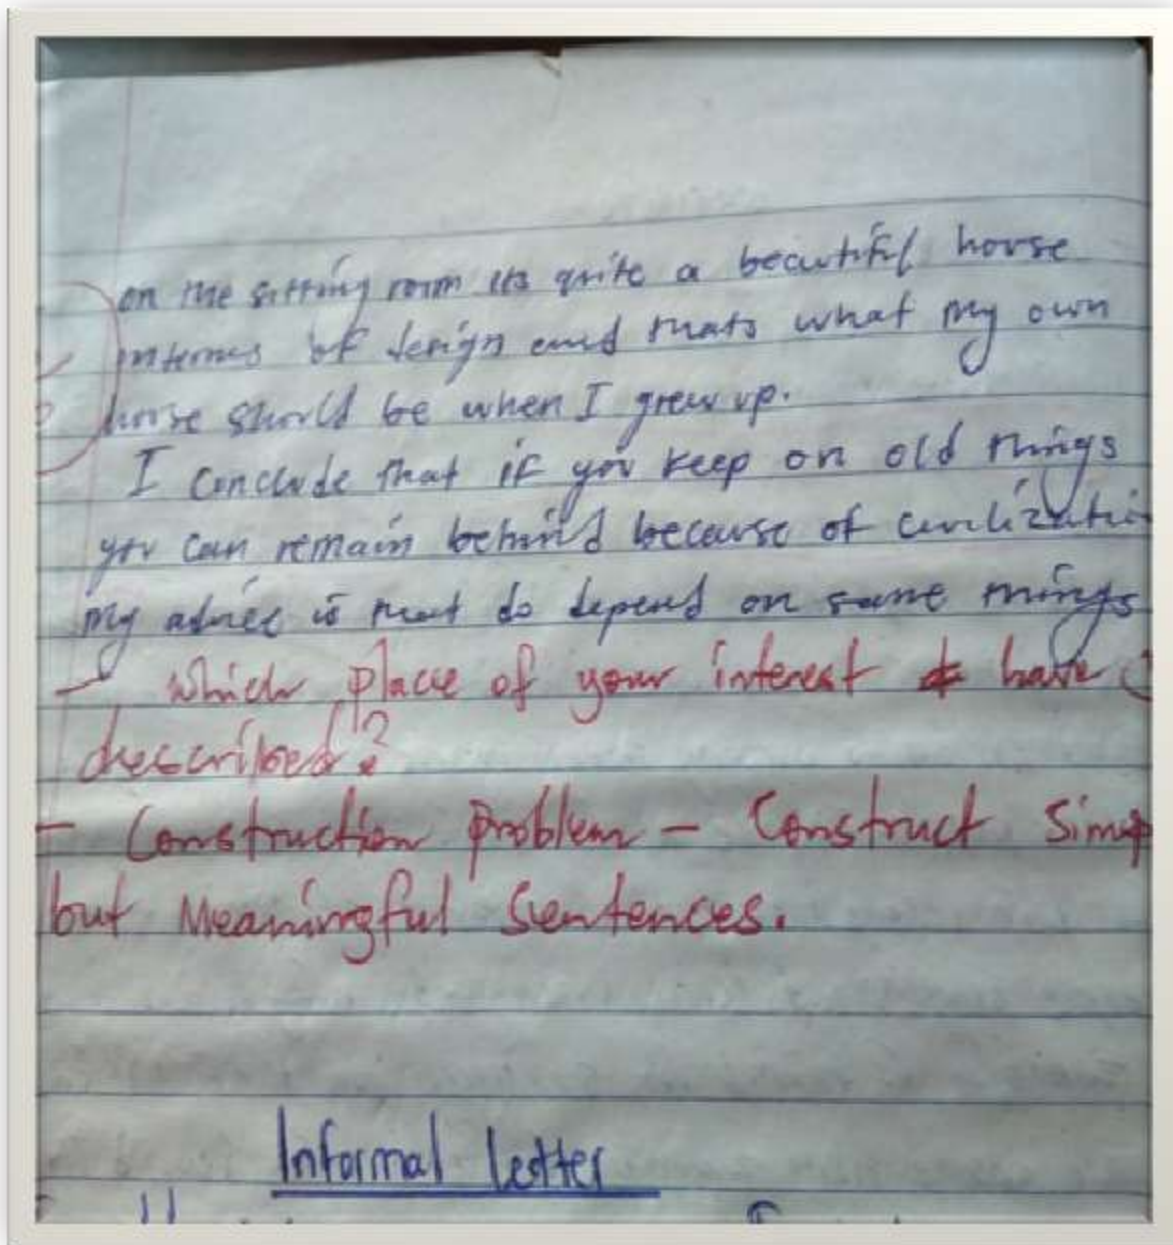 on the sitting room its quite a beautiful house
interms of design and thats what my own
house should be when I grew up.
I conclude that if you keep on old things
you can remain behind because of civilizatio
my advice is that do depend on same things
- which place of your interest have
described?
- Construction problem - Construct Simp
but Meaningful Sentences.
Informal letter